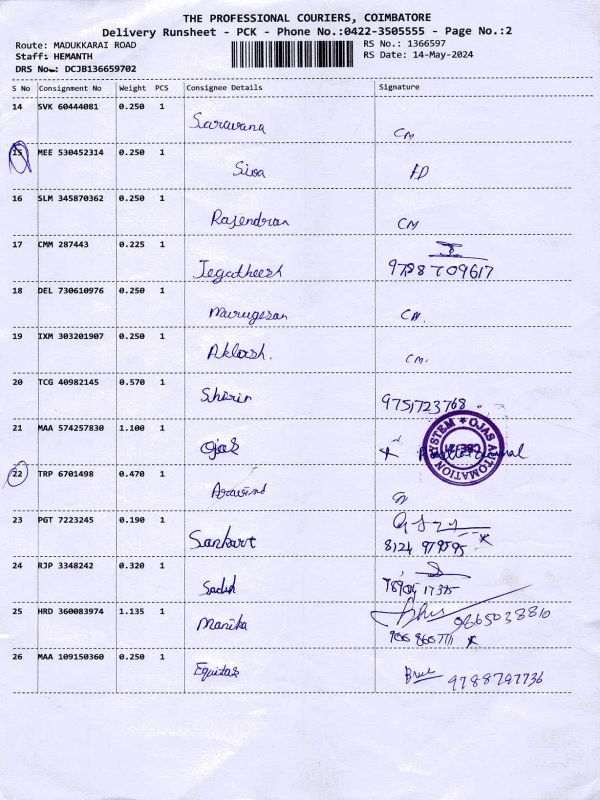 THE PROFESSIONAL COURIERS, COIMBATORE
Delivery Runsheet - PCK - Phone No.:0422-3505555 - Page No.:2
Route: MADUKKARAI ROAD RS No.: 1366597
Staff: HEMANTH RS Date: 14-May-2024
DRS No.: DCJB136659702
S No Consignment No Weight PCS Consignee Details Signature
14 SVK 60444081 0.250 1
Saravana CM
15 MEE 530452314 0.250 1
Siva FD
16 SLM 345870362 0.250 1
Rajendran CM
17 CMM 287443 0.225 1
Jegatheesh 9788709617
18 DEL 730610976 0.250 1
Murugesan CM.
19 IXM 303201907 0.250 1
Aklash. CM.
20 TCG 40982145 0.570 1
Shirin 9751723768
21 MAA 574257830 1.100 1
Ojas
OJAS AUTOMATION SYSTEM
22 TRP 6701498 0.470 1
Aravind
23 PGT 7223245 0.190 1
Sankart
8124 979595
24 RJP 3348242 0.320 1
Sadik
25 HRD 360083974 1.135 1
Manika 9665038810
26 MAA 109150360 0.250 1
Equitas 9788797736